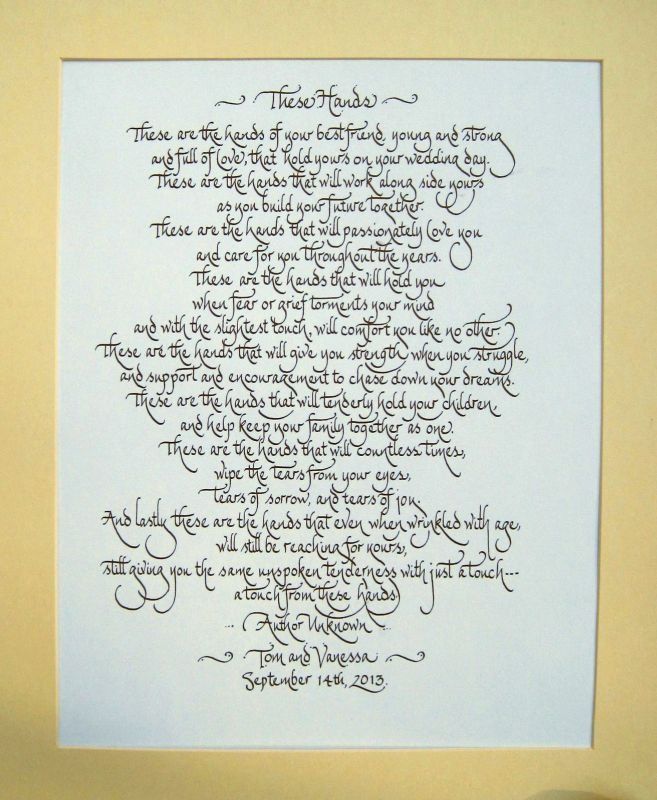 ~ These Hands ~
These are the hands of your best friend, young and strong
and full of love, that hold yours on your wedding day.
These are the hands that will work along side yours
as you build your future together.
These are the hands that will passionately love you
and care for you throughout the years.
These are the hands that will hold you
when fear or grief torments your mind
and with the slightest touch, will comfort you like no other.
These are the hands that will give you strength when you struggle,
and support and encouragement to chase down your dreams.
These are the hands that will tenderly hold your children,
and help keep your family together as one.
These are the hands that will countless times,
wipe the tears from your eyes,
tears of sorrow, and tears of joy.
And lastly these are the hands that even when wrinkled with age,
will still be reaching for yours,
still giving you the same unspoken tenderness with just a touch---
a touch from these hands
... Author Unknown ...
~ Tom and Vanessa ~
September 14th, 2013.